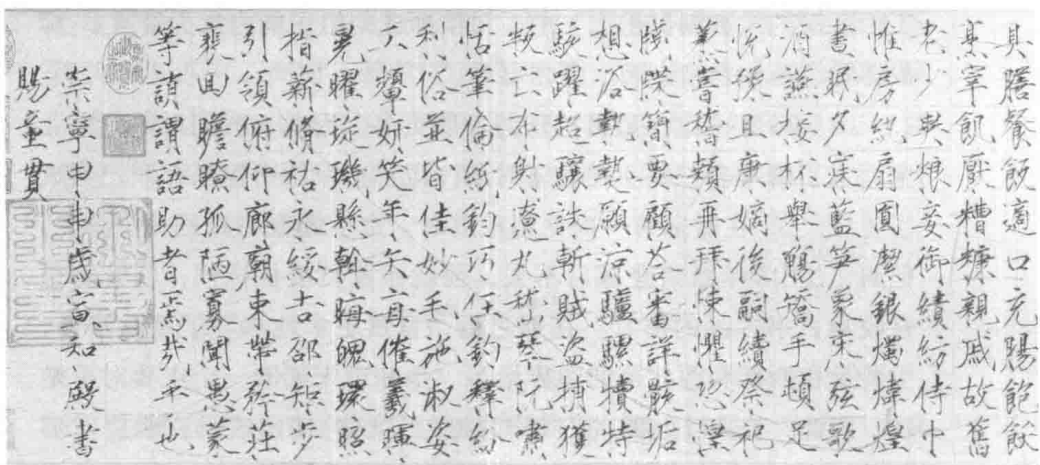 具膳餐飯適口充腸飽飫
烹宰飢厭糟糠親戚故舊
老少異粮妾御績紡侍巾
惟房紈扇圓潔銀燭煒煌
晝眠夕寐藍笋象床弦歌
酒讌接杯舉觴矯手頓足
悅豫且康嫡後嗣續祭祀
蒸嘗稽顙再拜悚懼恐惶
牋牒簡要顧荅審詳骸垢
想浴執熱願涼驢騾犢特
駭躍超驤誅斬賊盜捕獲
叛亡布射遼丸嵇琴阮嘯
恬筆倫紙鈞巧任釣釋紛
利俗並皆佳妙毛施淑姿
工顰妍笑年矢每催羲暉
晃曜琁璣縣斡晦魄環照
指薪脩祜永綏吉邵知步
引領俯仰廊廟束帶矜莊
裵回瞻眺孤陋寡聞愚蒙
等誚謂語助者焉哉乎也
崇寧甲申歲宣和殿書
賜童貫